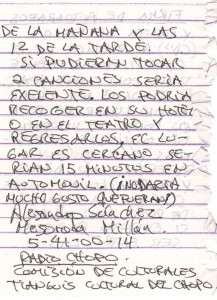 DE LA MAÑANA Y LAS
12 DE LA TARDE.
SI PUDIERAN TOCAR
2 CANCIONES SERIA
EXELENTE. LOS PODRIA
RECOGER EN SU HOTEL
O EN EL TEATRO Y
REGRESARLOS, EL LU-
GAR ES CERCANO SE-
RIAN 15 MINUTOS EN
AUTOMOVIL.
MUCHO GUSTO QUE FUERAN)
Alejandro Sánchez
Mesporada Millán
5-41-00-14
RADIO CHOPO
COMISIÓN DE CULTURALES
TIANGUIS CULTURAL DEL CHOPO